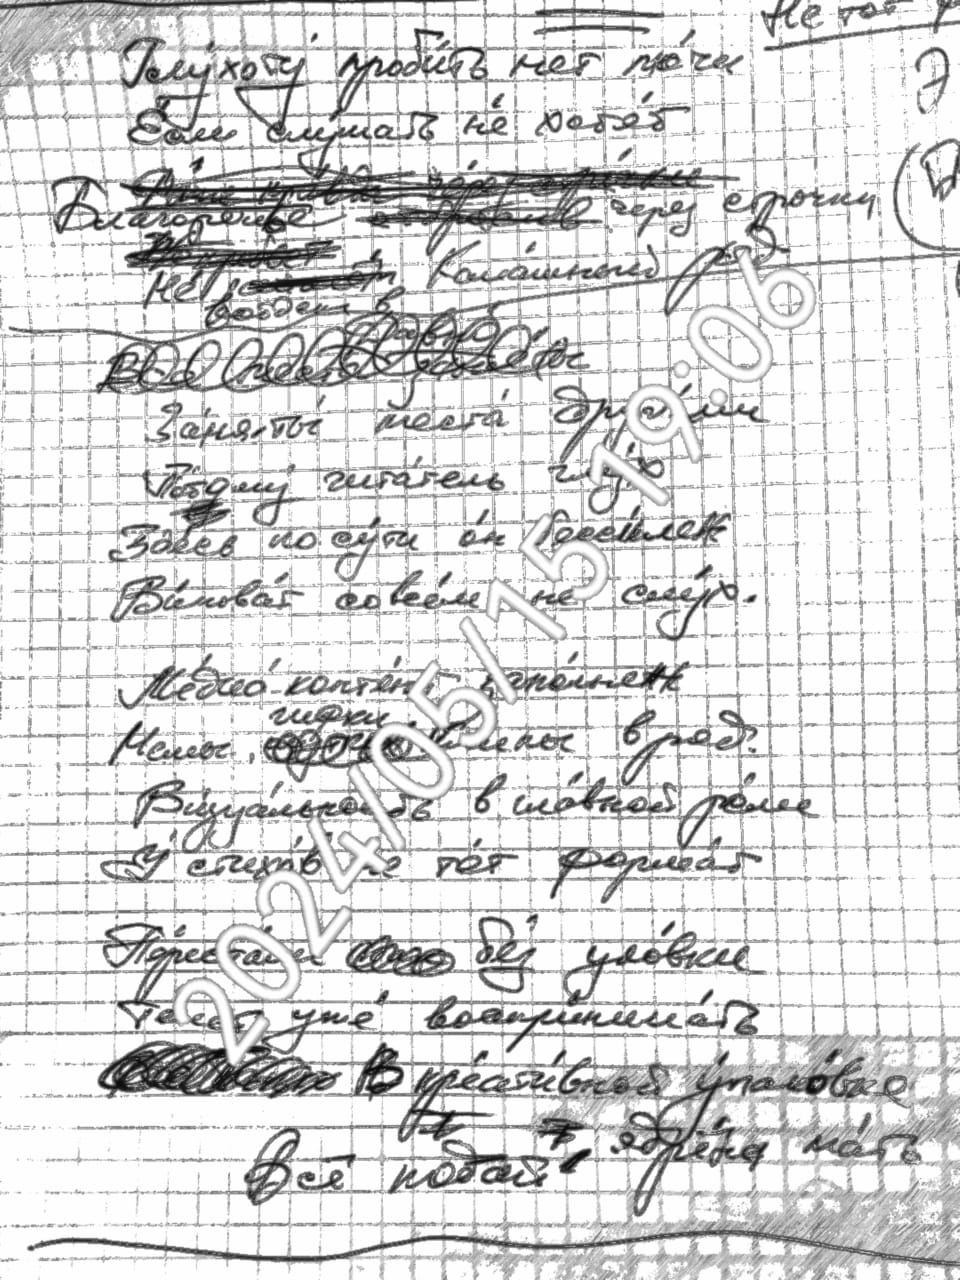 Не тот
Глухоту пробить нет мочи
Если слушать не хотят
Благоречье через строчки
Не войдет в Калашный ряд
Заняты места другими
Потому читатель глух
Здесь по сути он бессилен
Виноват совсем не слух.
Медиа-контент заполнен
Мемы, гифки клипы в ряд.
Визуальность в главной роли
У стихов не тот формат
Перестали без уловки
Текст уже воспринимать
В креативной упаковке
Всё подай ядрёна мать
2024/05/15 19:06